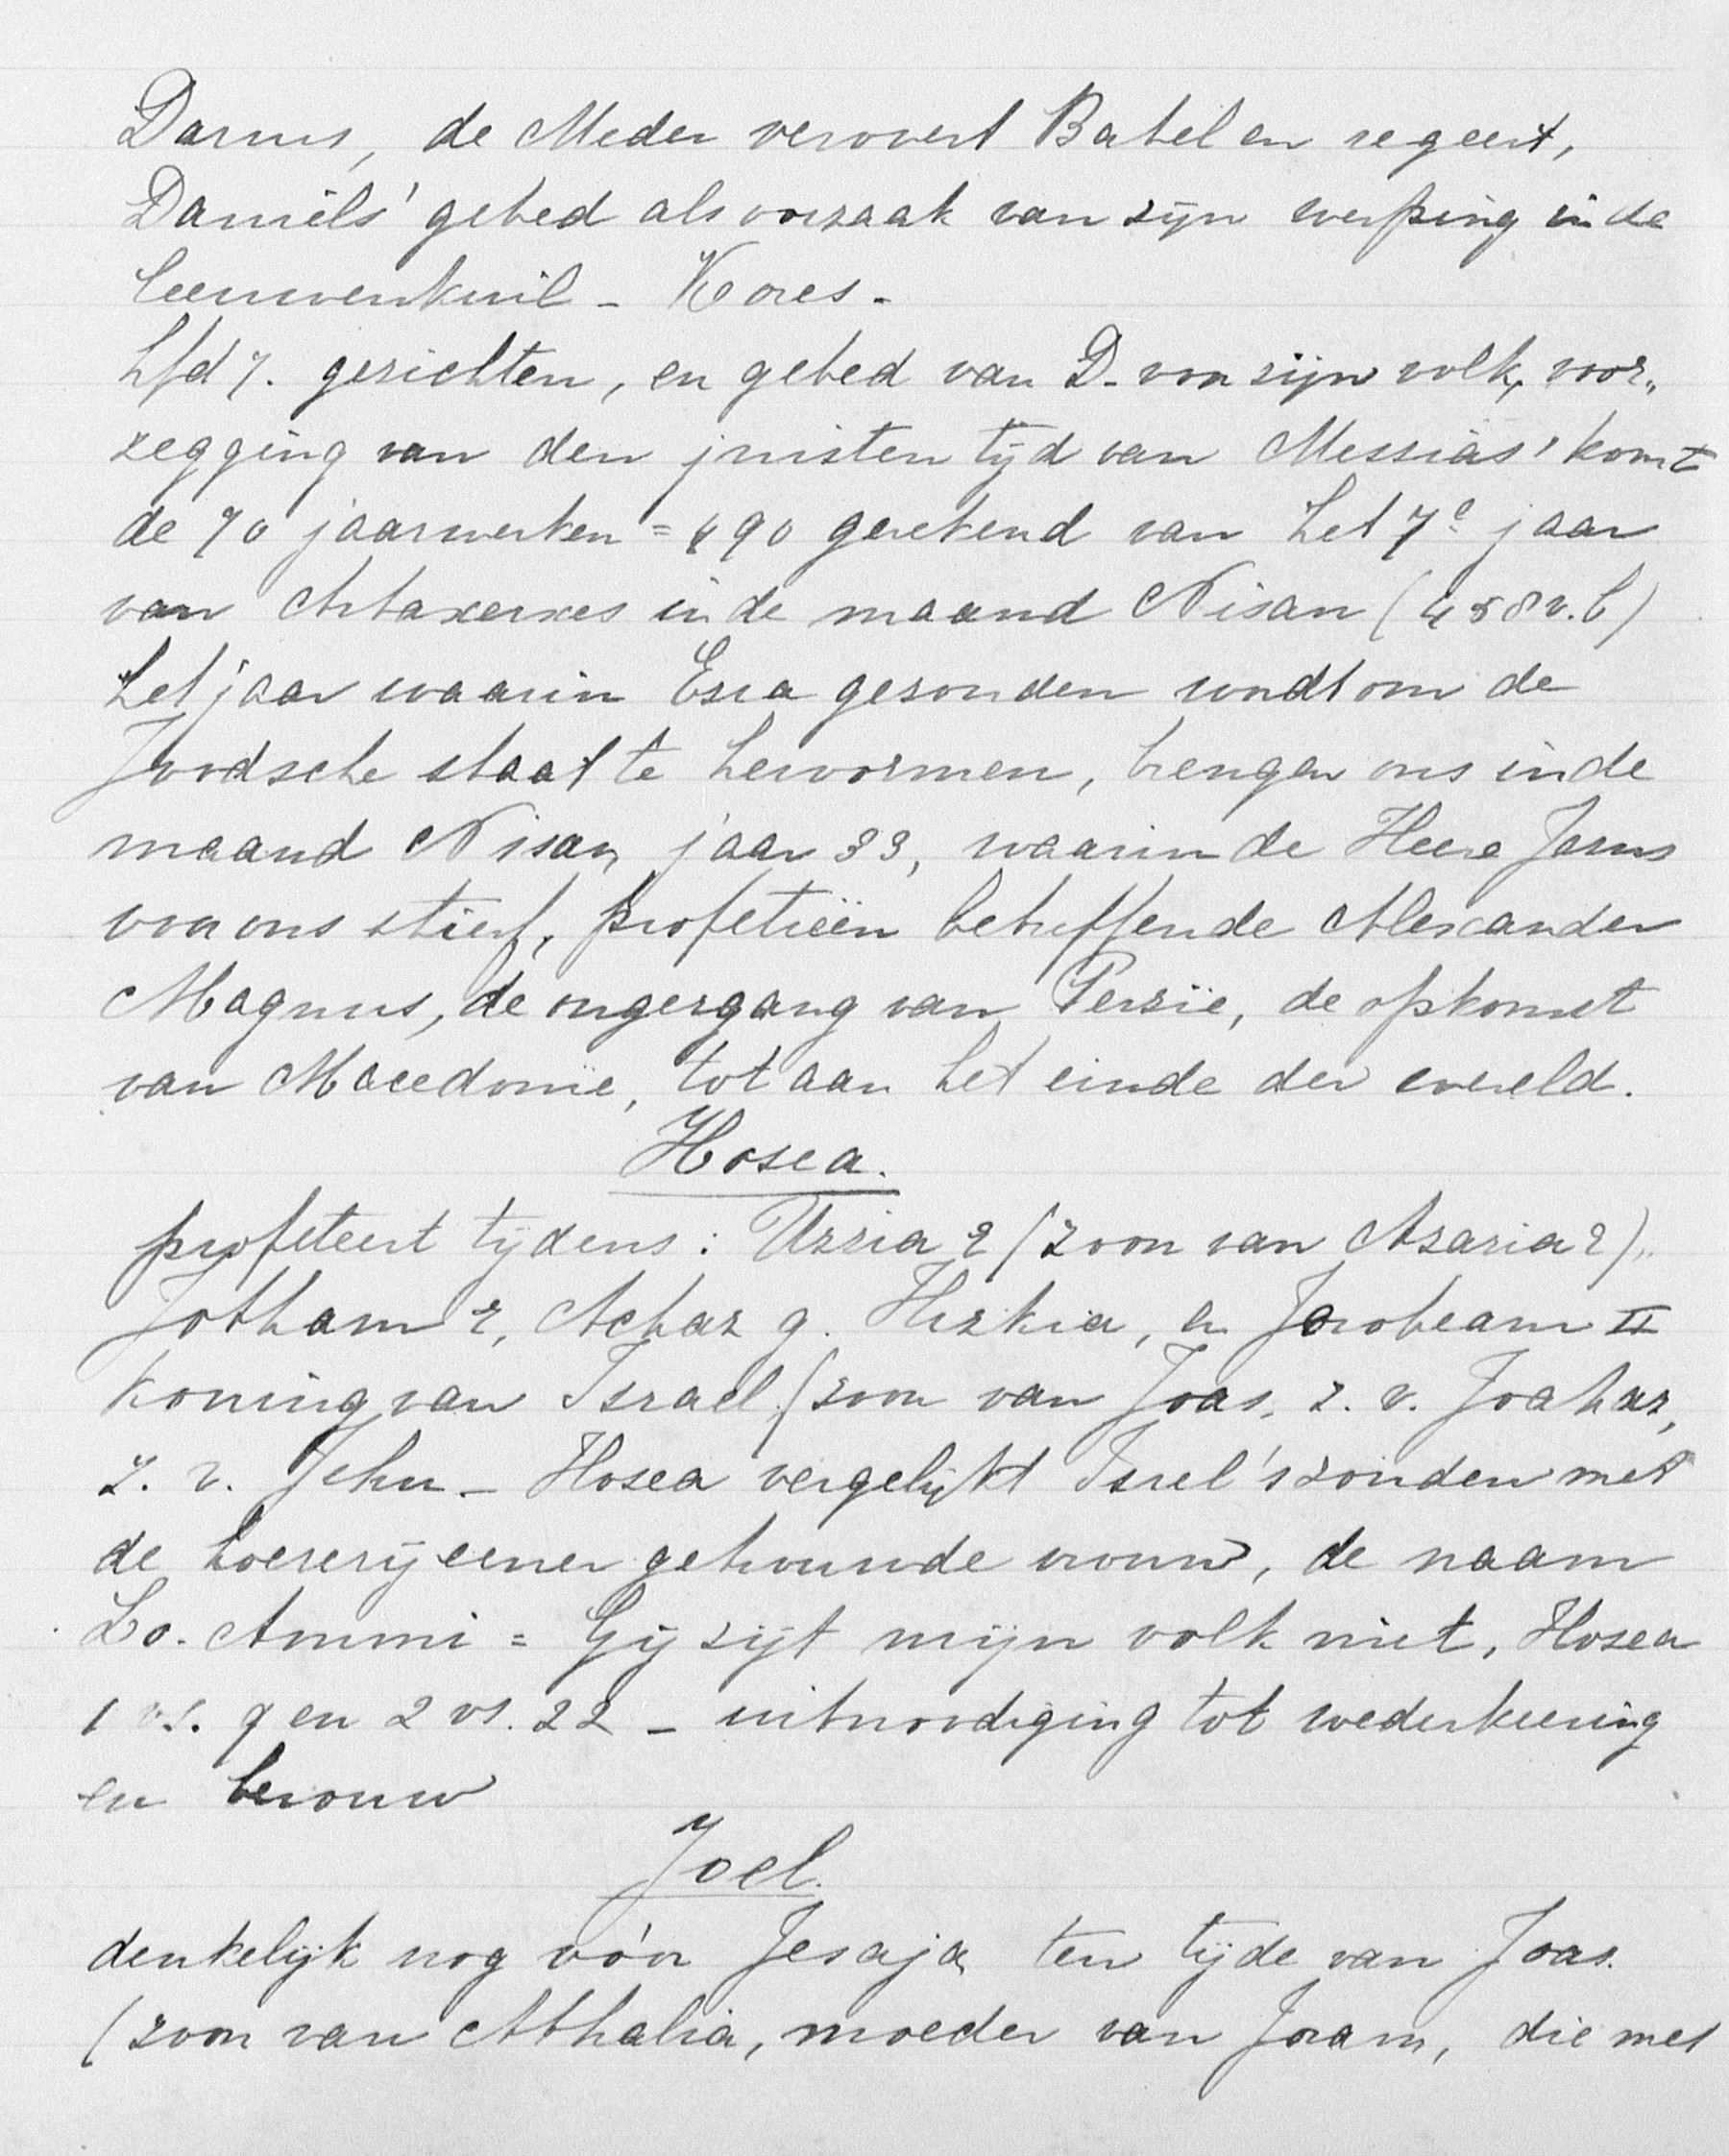 Darius, de Meder verovert Babel en regeert,
Daniëls' gebed als oorzaak van zijn werping in de
leeuwenkuil - Kores.
Hfd 7. gezichten, en gebed van D. voor zijn volk, voor„
zegging van den juisten tijd van Messias' komt
de 70 jaarweken = 490 gerekend van het 7e jaar
van Artaxerxes in de maand Nisan (458 v. C)
het jaar waarin Esra gezonden wordt om de
Joodsche staat te hervormen, brengen ons in de
maand Nisan, jaar 33, waarin de Heere Jezus
voor ons stierf, profetieën betreffende Alexander
Magnus, de ongergang van Perzië, de opkomst
van Macedonië, tot aan het einde der wereld.
Hosea.
profeteert tijdens: Uzzia ? (zoon van Azaria ?)„
Jotham ?, Achaz g. Hizkia, en Jerobeam II
koning van Israel (zoon van Joas, z. v. Joahaz,
z. v. Jehu - Hosea vergelijkt Isrel's zonden met
de hoererij eener getrouwde vrouw, de naam
Lo. Ammi = Gij zijt mijn volk niet, Hosea
1 vs. 9 en 2 vs. 22 - uitnoodiging tot wederkeering
en berouw
Joel.
denkelijk nog vóór Jesaja, ten tijde van Joas.
(zoon van Athalia, moeder van Joram, die met